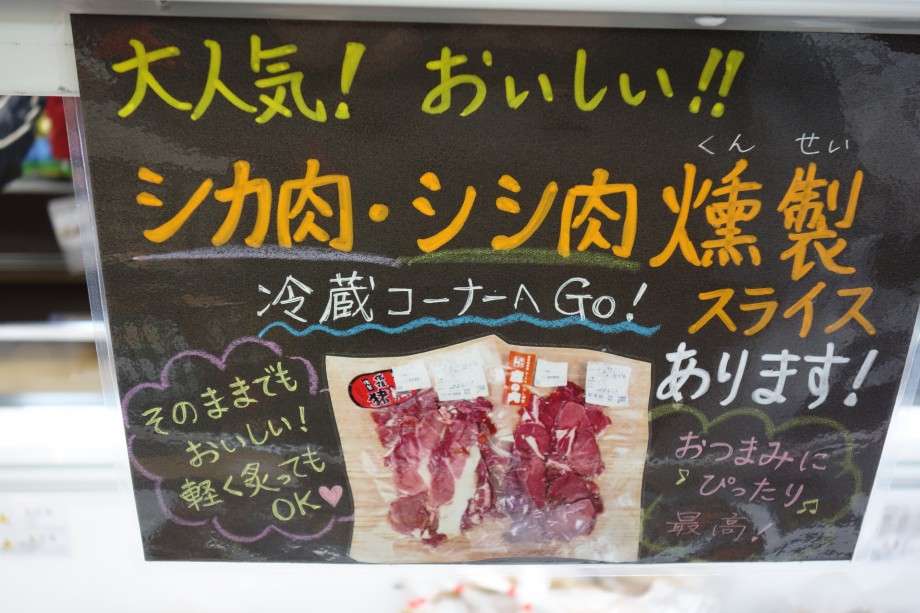 大人気! おいしい!!
くん せい
シカ肉・シシ肉 燻製
スライス
あります!
冷蔵コーナーへ Go!
そのままでも
おいしい!
軽く炙っても
OK
おつまみに
ぴったり
最高!
猪